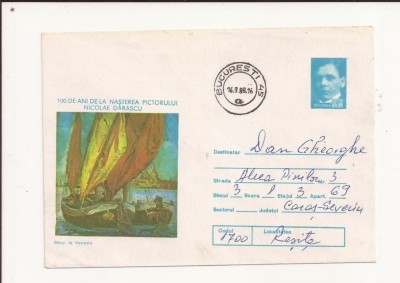 100 DE ANI DE LA NAȘTEREA PICTORULUI
NICOLAE DĂRĂSCU
BUCUREȘTI 45
Destinatar Dan Gheorghe
Strada Aleea Pinilor 3
Blocul 3 Scara 1 Etajul 3 Apart. 69
Sectorul Județul Caraș-Severin
Codul Localitatea
1700 Reșița